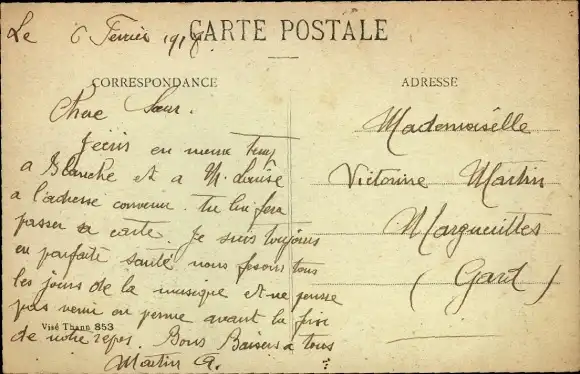 Le 6 Fevrier 191
CARTE POSTALE
CORRESPONDANCE
ADRESSE
Chere Sœur.
J'écris en meme temps
a Blanche et a M. Louise
a l'adresse convenu. tu lui fera
passer sa carte. Je suis toujours
en parfaite santé nous fesons tous
les jours de la musique et ne pense
pas venir en perme avant la fin
de notre repos. Bons Baisers a tous
Martin A.
Visé Thann 853
Mademoiselle
Victorine Martin
Marguerittes
(Gard)